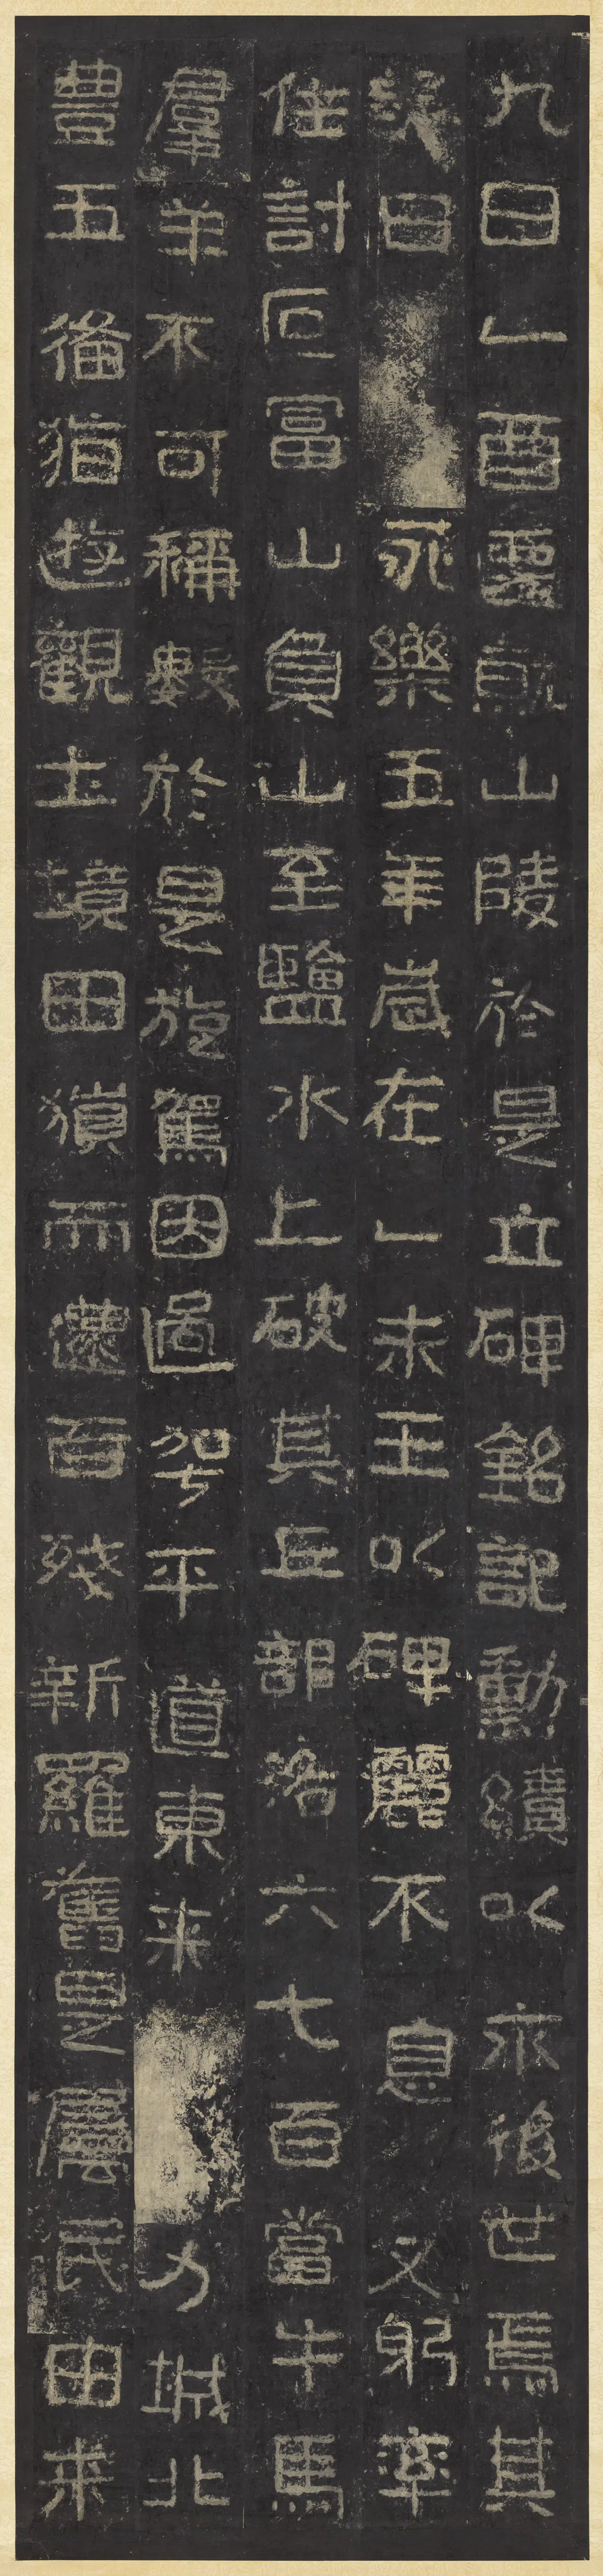 九日乙酉遷就山陵於是立碑銘記勳績以示後世焉其
詞曰永樂五年歲在乙未王以碑麗不息又躬率
住討叵富山負山至鹽水上破其丘部洛六七百當牛馬
羣羊不可稱數於是旋駕因過平道東来力城北
豊五備猶遊觀土境田獵而還百殘新羅舊是屬民由来